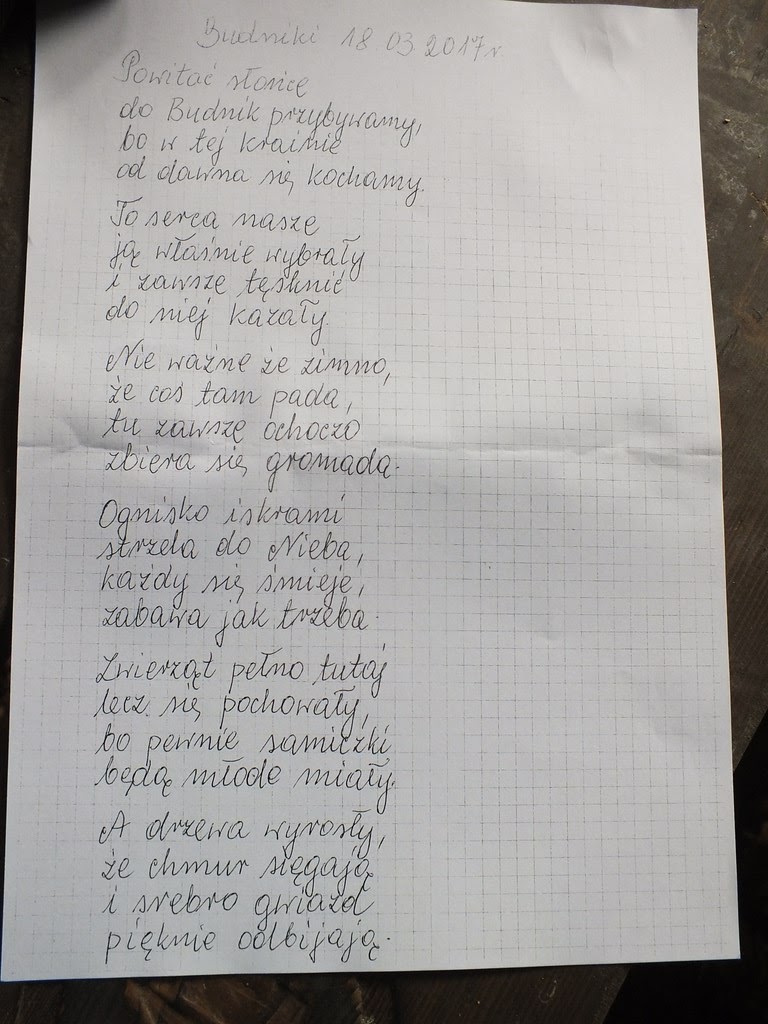 Budniki 18 03 2017 r.
Powitać słońce
do Budnik przybywamy,
bo w tej krainie
od dawna się kochamy.
To serca nasze
ją właśnie wybrały
i zawsze tęsknić
do niej kazały.
Nie ważne że zimno,
że coś tam pada,
tu zawsze ochoczo
zbiera się gromada.
Ognisko iskrami
strzela do Nieba,
każdy się śmieje,
zabawa jak trzeba.
Zwierząt pełno tutaj
lecz się pochowały,
bo pewnie samiczki
będą młode miały.
A drzewa wyrosły,
że chmur sięgają
i srebro gwiazd
pięknie odbijają.